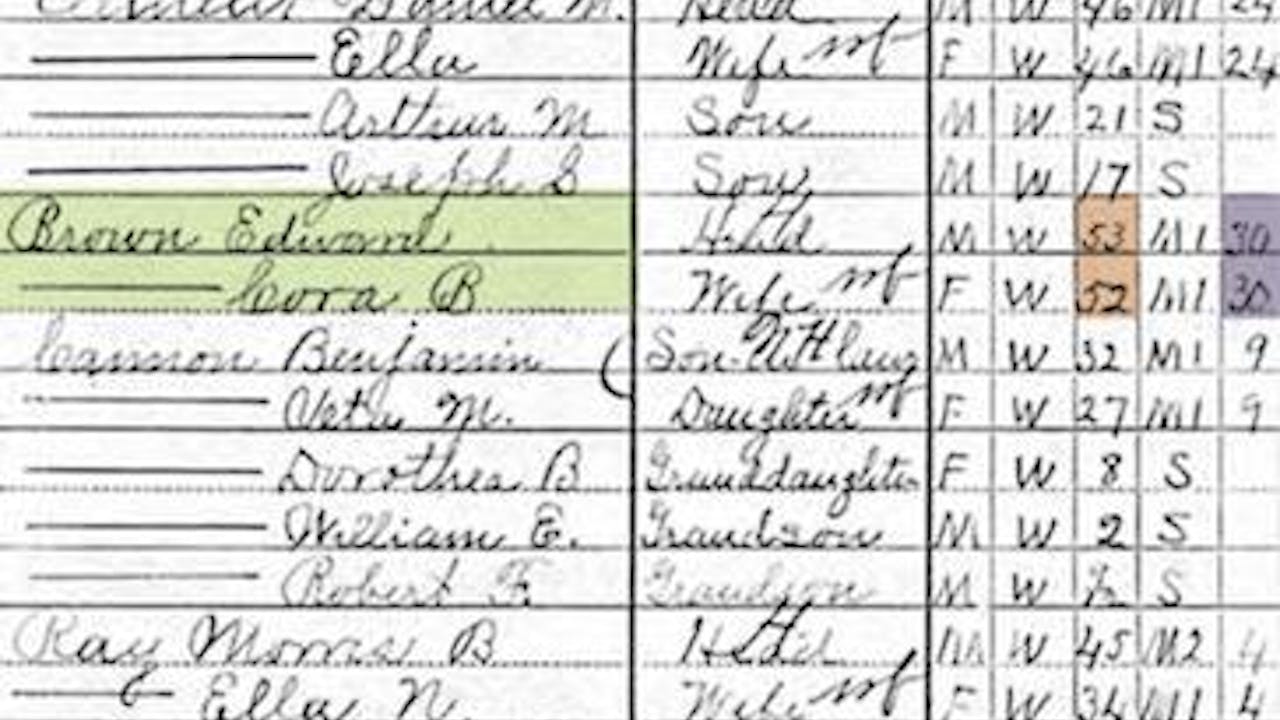 Daniel M. Head M W 46 M1 24
Ella Wife F W 46 M1 24
Arthur M Son M W 21 S
Joseph S Son M W 17 S
Brown Edward Head M W 53 M1 30
Cora B Wife F W 52 M1 30
Cannon Benjamin Son-M W 32 M1 9
M. Daughter F W 27 M1 9
Dorothea B Granddaughter F W 8 S
William E. Grandson M W 2 S
Robert F. Grandson M W S
Ray Morris B Head M W 45 M2 4
Ella N. Wife F W 34 M1 4